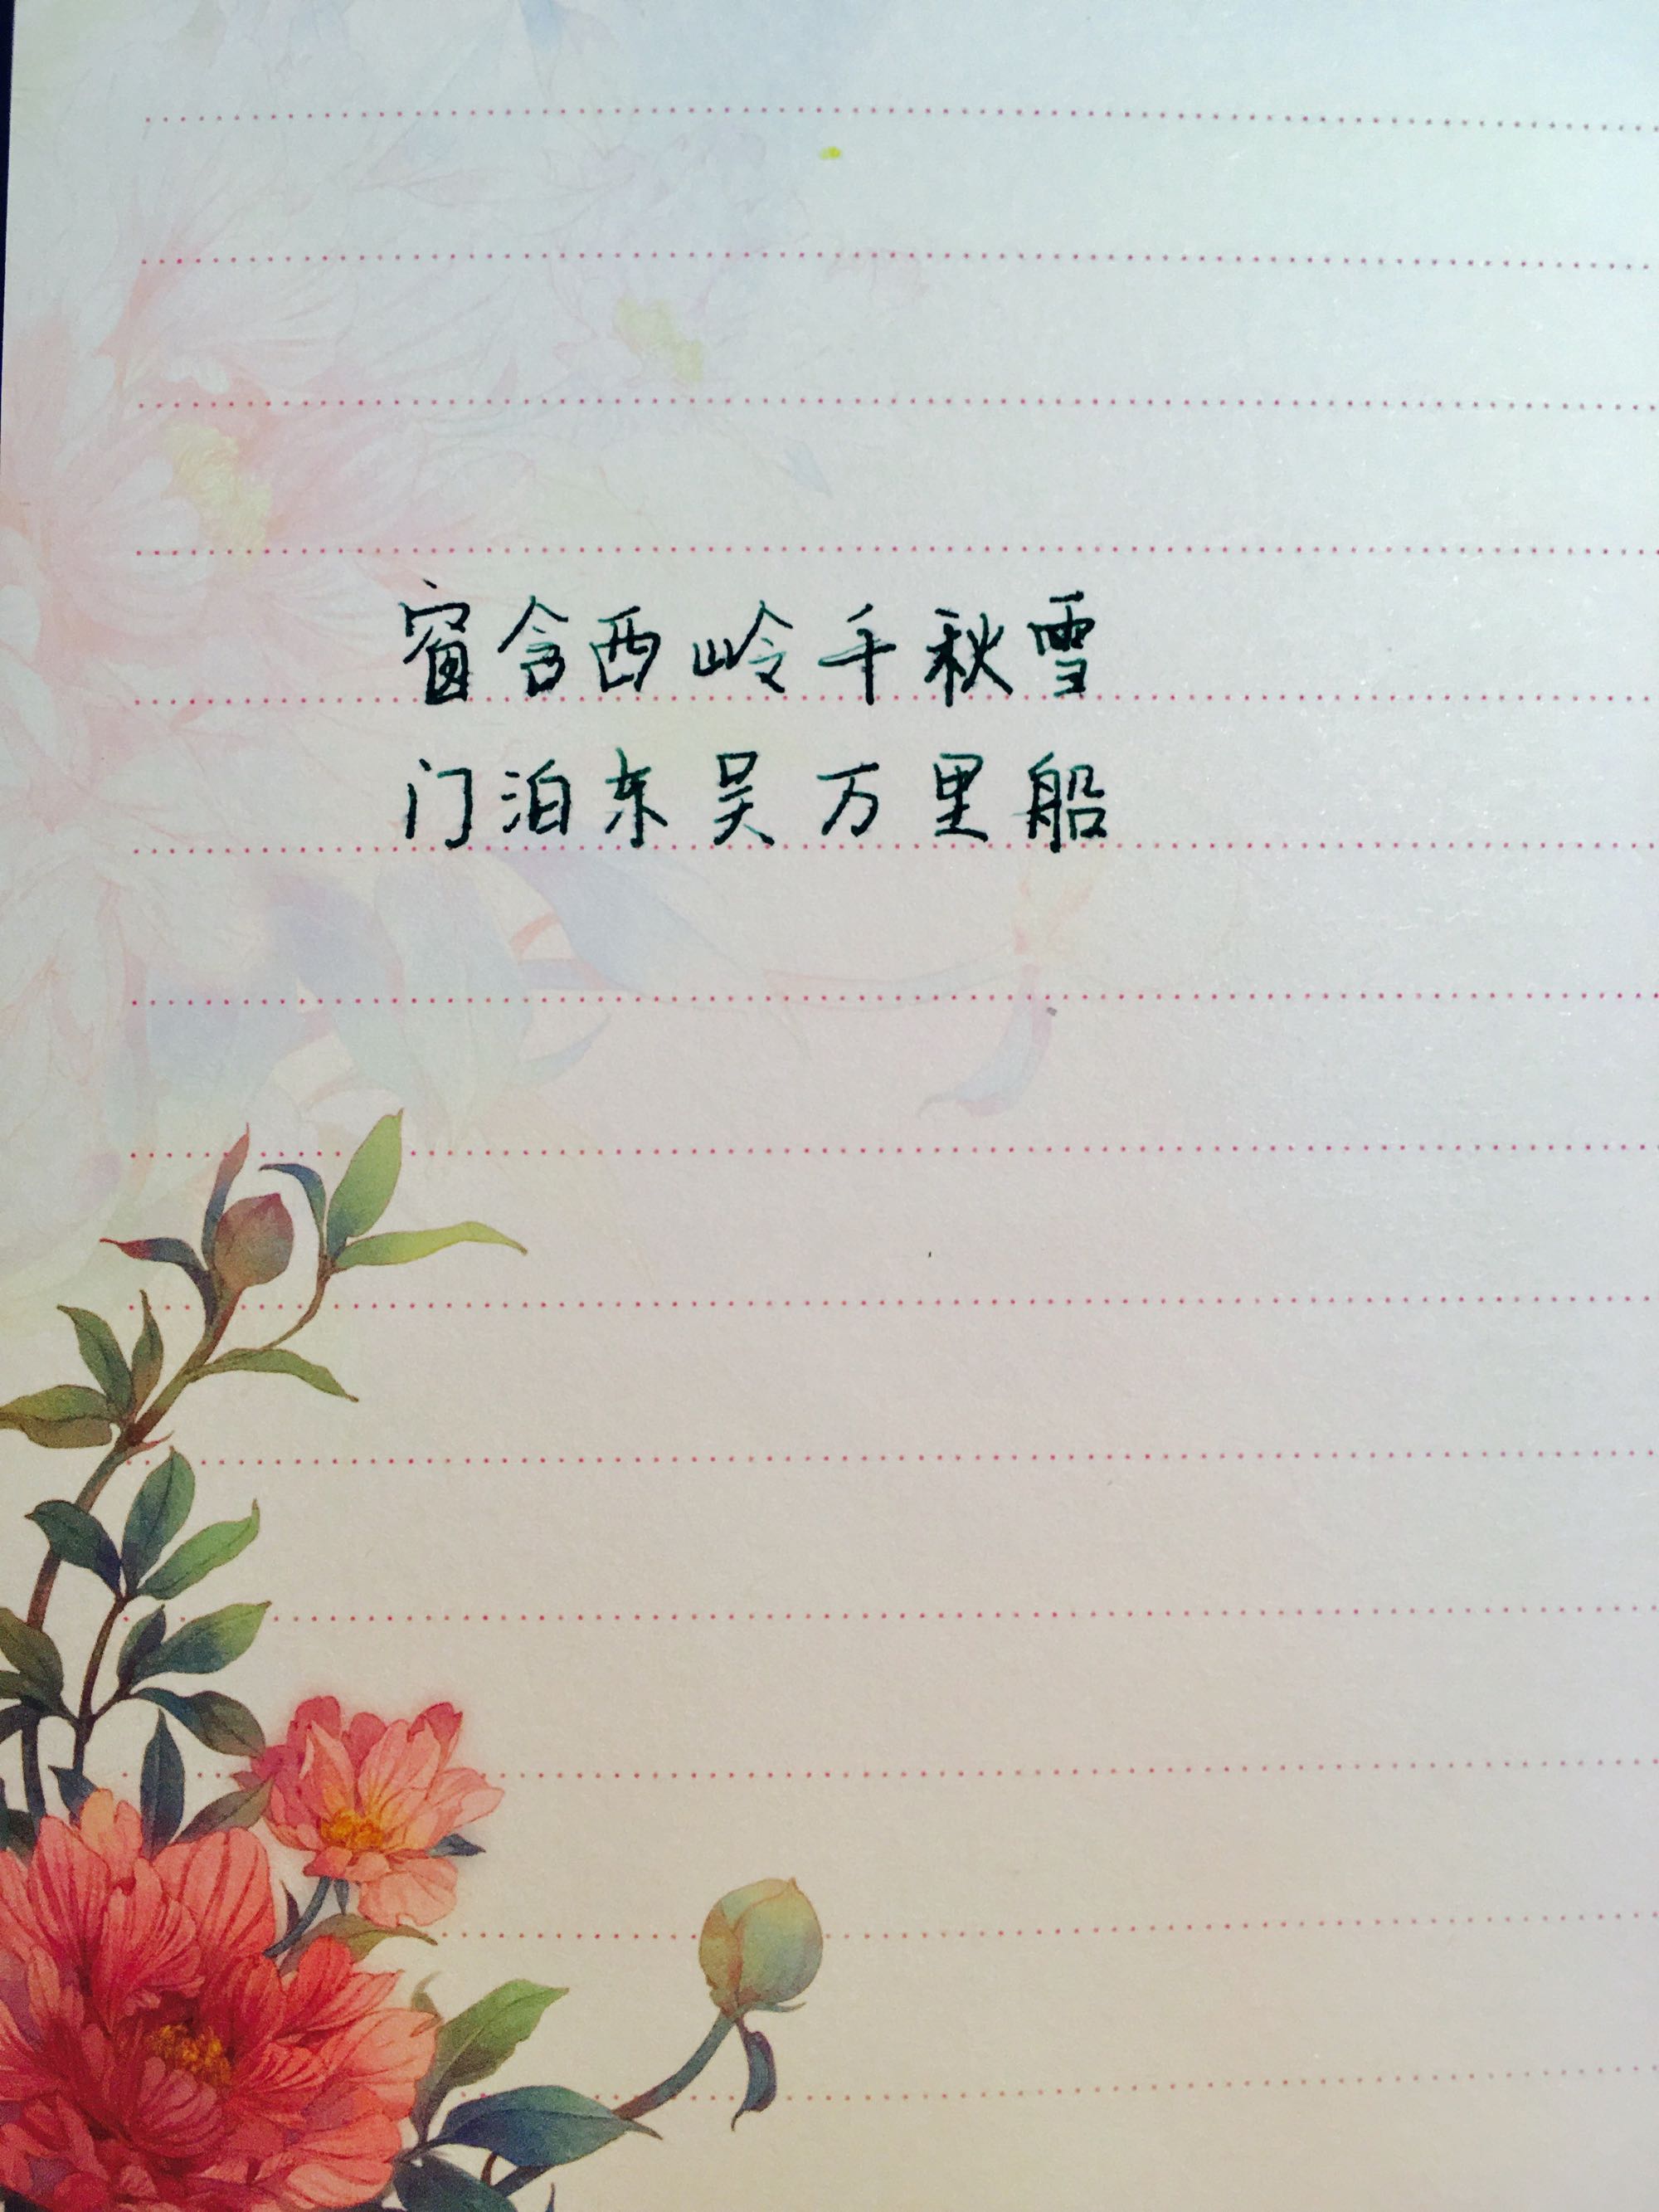 窗含西岭千秋雪
门泊东吴万里船